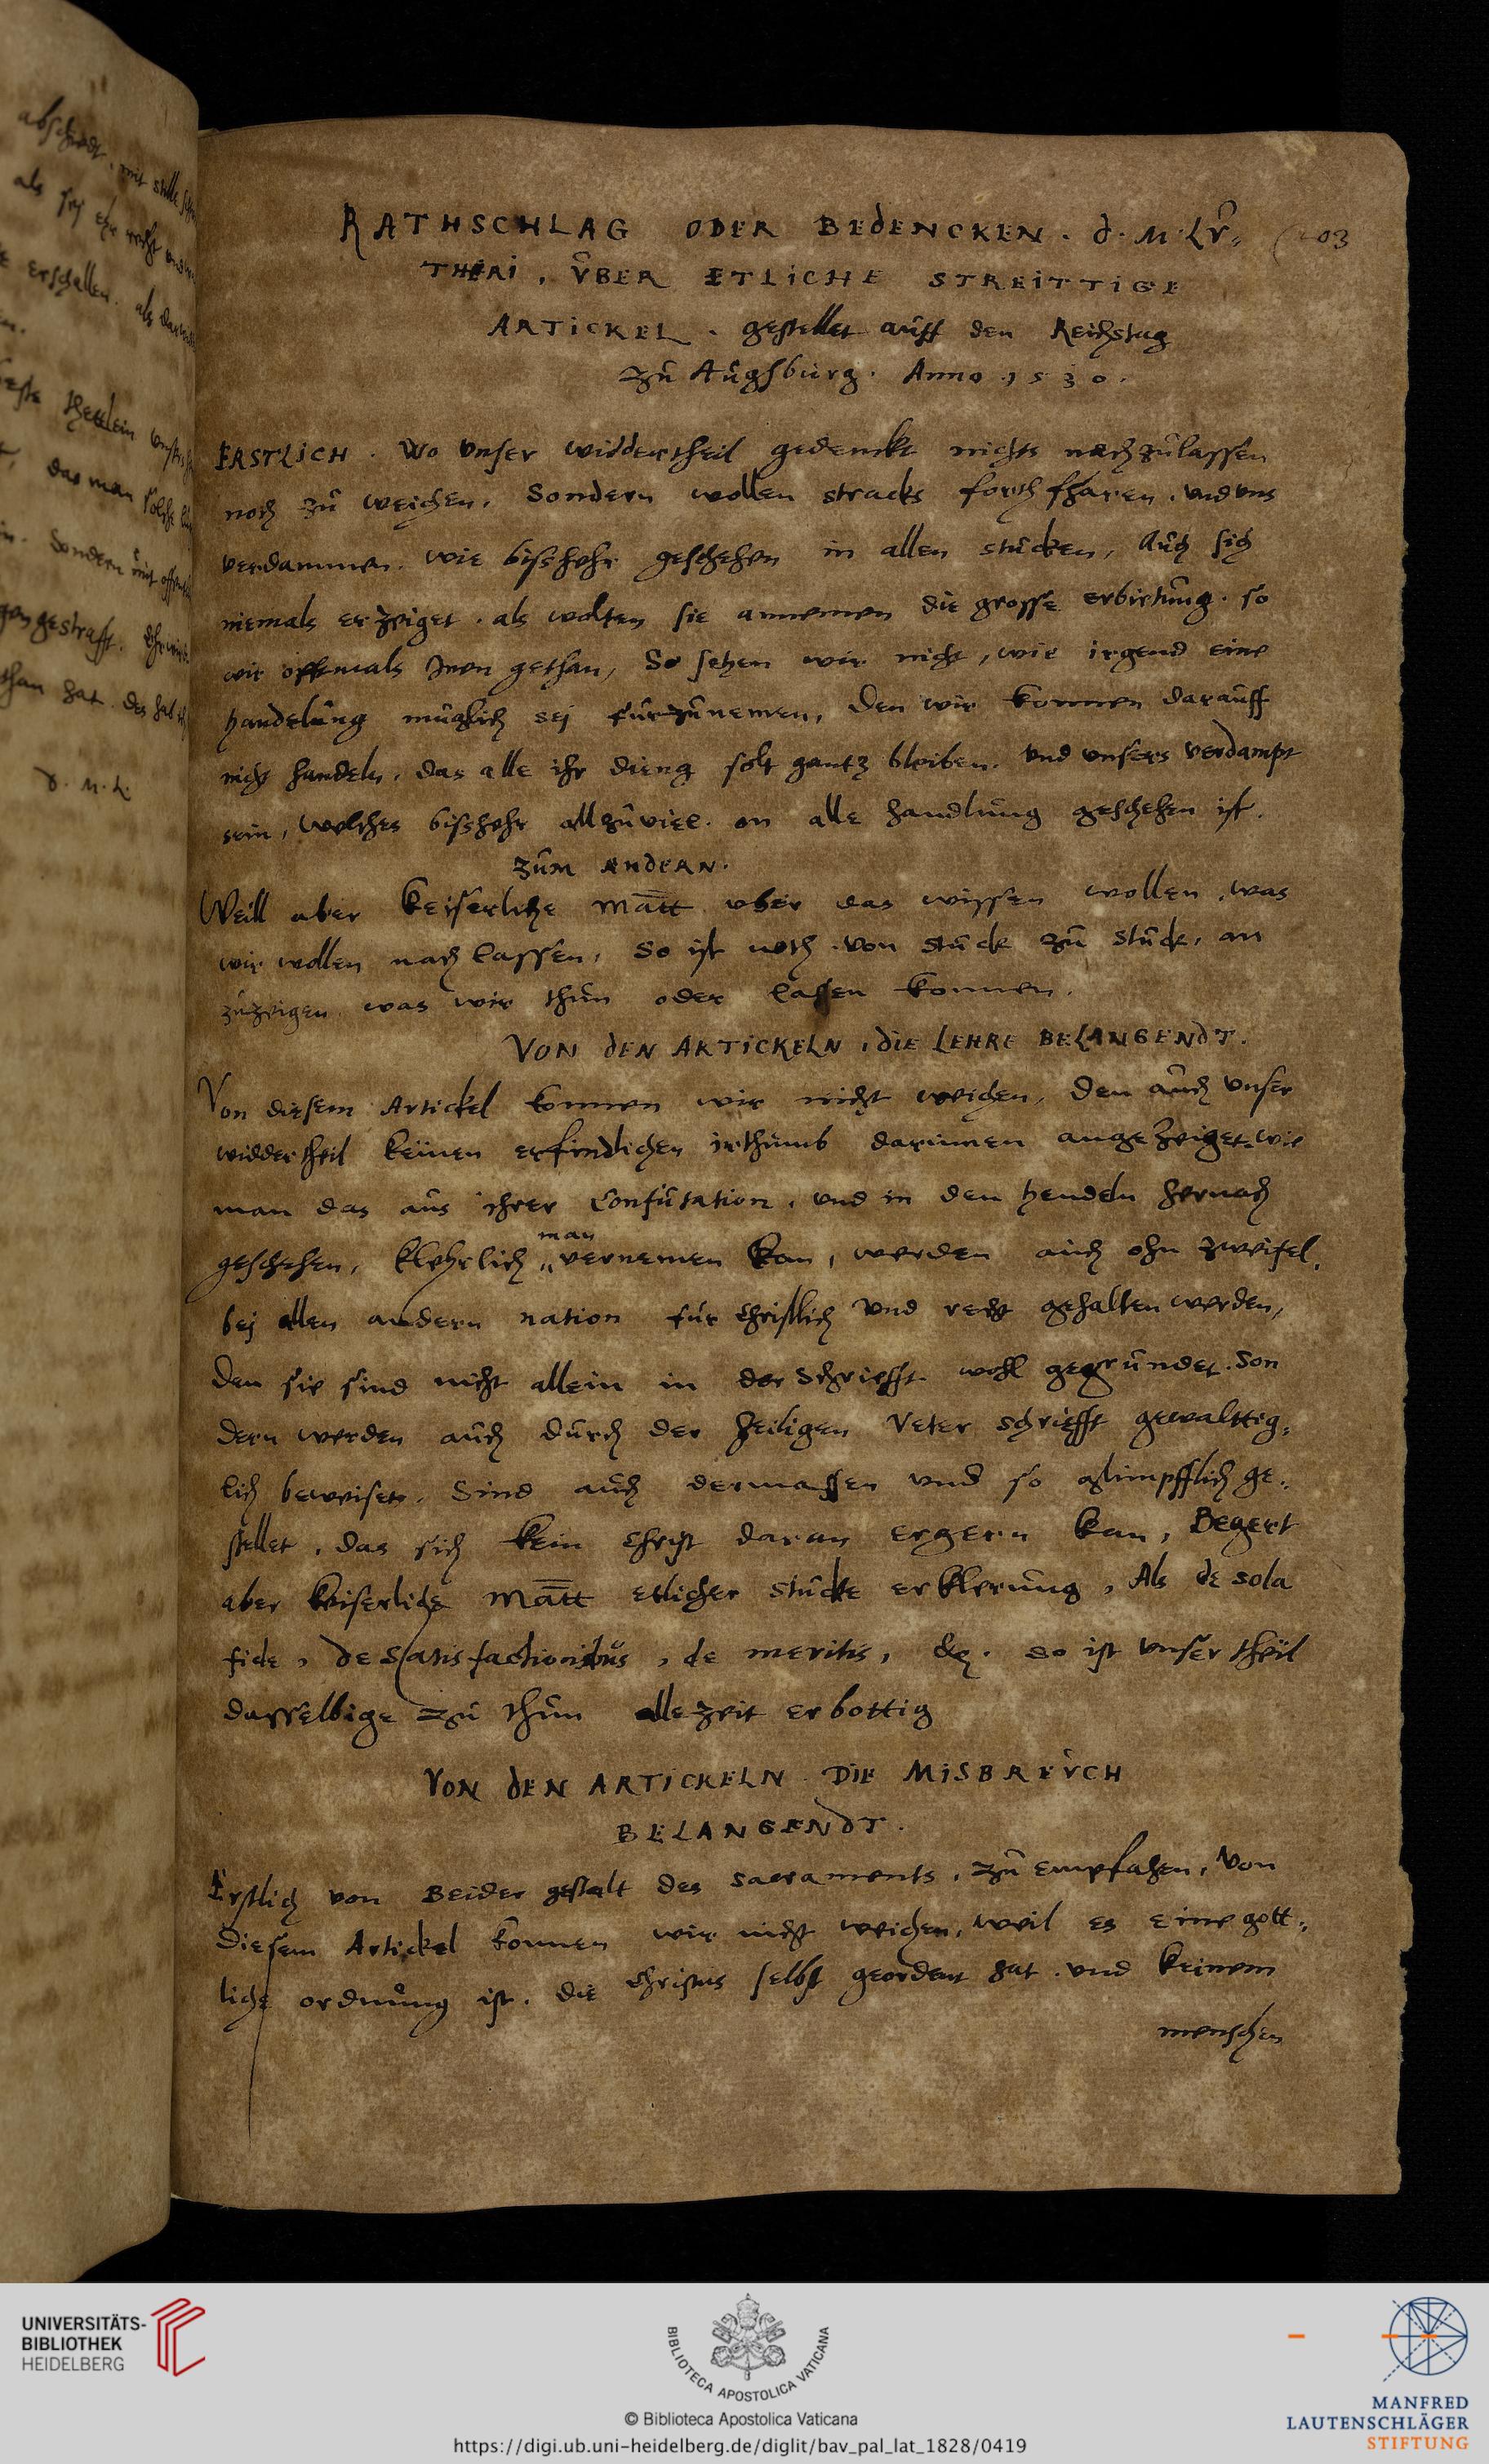 abschiedt, mit stille
als sey ehr recht
erschallen. als
das man solche
Sondern mit offent
gestrafft. Ehr
than hat. des hab ich
D. M. L.
RATHSCHLAG ODER BEDENCKEN. D. M. LV=
203
THERI, VBER ETLICHE STREITTIGE
ARTICKEL. gestellet auff den Reichstag
zu Augsburg. Anno 1530.
ERSTLICH. Wo unser widdertheil gedenckt nichts nachzulassen
noch zu weichen, Sondern wollen stracks forth fharen, und uns
verdammen, wie bissherh geschehen in allen stucken, Auch sich
niemals erzeiget, als wolten sie annemen die grosse erbietung, so
wir offtmals inen gethan, So sehen wir nicht, wie irgend eine
handelung muglich sej furzunemen, Den wir konnen darauff
nicht handeln, das alle ihr dieng solt gantz bleiben, und unsers verdampt
sein, welches bissherh allzuviel on alle handlung geschehen ist.
ZUM ANDERN.
Weill aber Keiserliche Matt uber das wissen wollen, was
wir wollen nach lassen, So ist noth von stuck zu stuck, an
zuzeigen was wir thun oder lassen konnen.
VON DEN ARTICKELN, DIE LEHRE BELANGENDT.
Von diesem Artickel konnen wir nicht weichen, Den auch unser
widdertheil keinen erfindlichen irthumb darinnen angezeiget, wie
man das aus ihrer Confutation, und in den hendeln hernach
geschehen, klehrlich man vernemen kan, werden auch ohn zweifel,
bej allen andern nation fur Christlich und recht gehalten werden,
Den sie sind nicht allein in der Schriefft wohl gegrundet, Son
dern werden auch durch der heiligen Veter schriefft gewalttig=
lich beweiset, Sind auch dermassen und so glimpfflich ge=
stellet, das sich kein Christ daran ergern kan, Begert
aber Keiserliche Matt etlicher stucke erklerung, Als de sola
fide, de Satisfactionibus, de meritis, &c. so ist unser theil
dasselbige zu thun allezeit erbottig
VON DEN ARTICKELN DIE MISBREUCH
BELANGENDT.
Erstlich von Beider gestalt des Sacraments, zu empfahen, Von
Diesem Artickel konnen wir nicht weichen, weil es eine gott=
liche ordnung ist, die Christus selbst geordent hat, und keinem
menschen
UNIVERSITÄTS-
BIBLIOTHEK
HEIDELBERG
BIBLIOTECA APOSTOLICA VATICANA
© Biblioteca Apostolica Vaticana
https://digi.ub.uni-heidelberg.de/diglit/bav_pal_lat_1828/0419
MANFRED
LAUTENSCHLÄGER
STIFTUNG